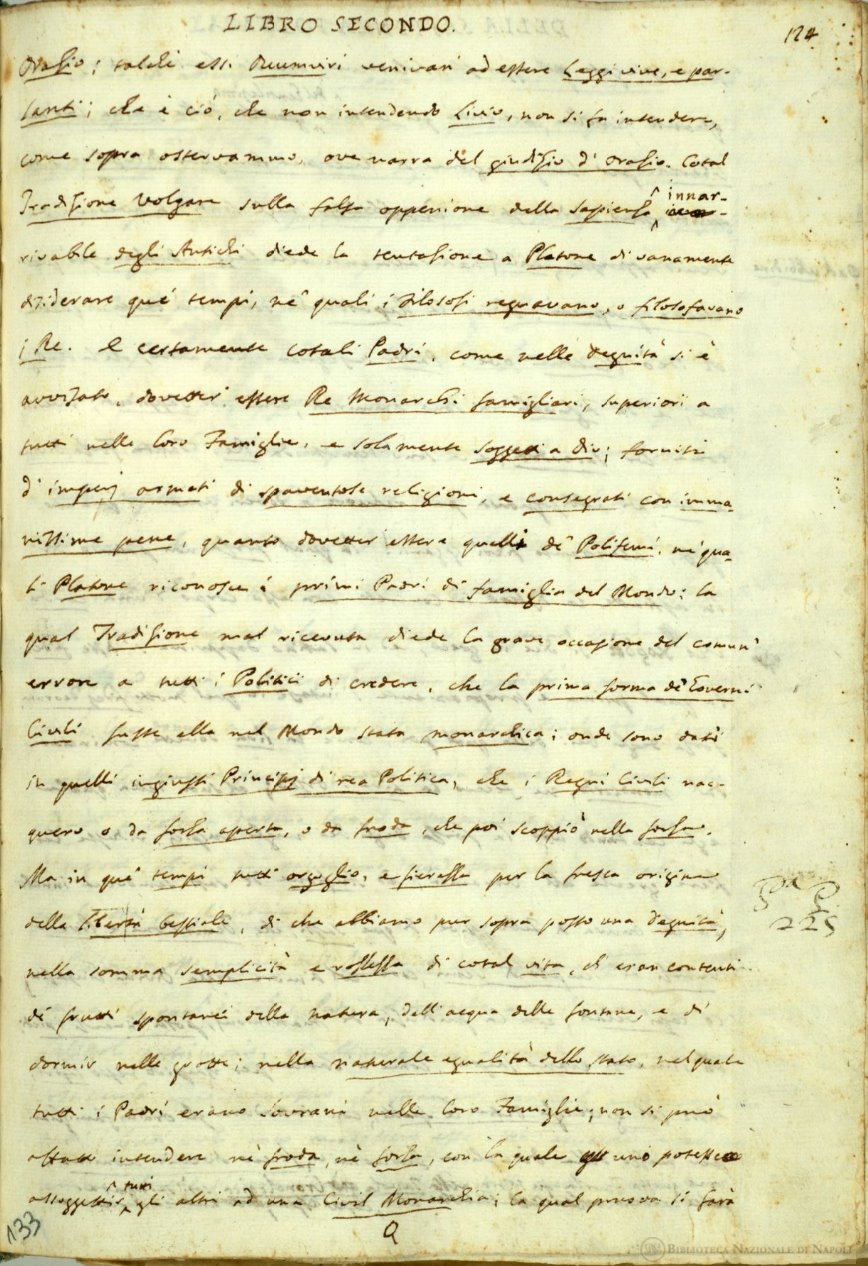 LIBRO SECONDO.
124
Orazio; talchè essi Duumviri venivan' ad essere Leggi vive, e par-
lanti; che è ciò, che non intendendo Livio, non si fa intendere,
come sopra osservammo, ove narra del giudizio d' Orazio. Cotal
Tradizione volgare sulla falsa oppenione della Sapienza innar-
rivabile degli Antichi diede la tentazione a Platone di vanamente
disiderare que' tempi, ne' quali i Filosofi regnavano, o filosofavano
i Re. E certamente cotali Padri, come nelle Degnità si è
avvisato, dovetter' essere Re Monarchi famigliari, superiori a
tutti nelle loro Famiglie, e solamente soggetti a Dio; forniti
d' imperj armati di spaventose religioni, e consegrati con imma
nissime pene, quanto dovetter' essere quelli de' Polifemi, ne' qua
li Platone riconosce i primi Padri di famiglia del Mondo: la
qual Tradizione mal ricevuta diede la grave occasione del comun'
errore a tutti i Politici di credere, che la prima forma de' Governi
Civili fusse ella nel Mondo stata monarchica; onde sono dati
in quelli ingiusti Principj di rea Politica, che i Regni Civili nac-
quero o da forza aperta, o da froda, che poi scoppiò nella forza.
Ma in que' tempi tutti orgoglio, e fierezza per la fresca origine
della libertà bestiale, di che abbiamo pur sopra posto una Degnità,
nella somma semplicità e rozzezza di cotal vita, ch' eran contenti
de' frutti spontanei della natura, dell'acqua delle fontane, e di
dormir nelle grotte; nella naturale egualità dello stato, nel quale
tutti i Padri erano sovrani nelle loro Famiglie; non si può
affatto intendere nè froda, nè forza, con la quale uno potesse
assoggettir tutti gli altri ad una Civil Monarchia; la qual pruova si farà
225
Q
133
BIBLIOTECA NAZIONALE DI NAPOLI